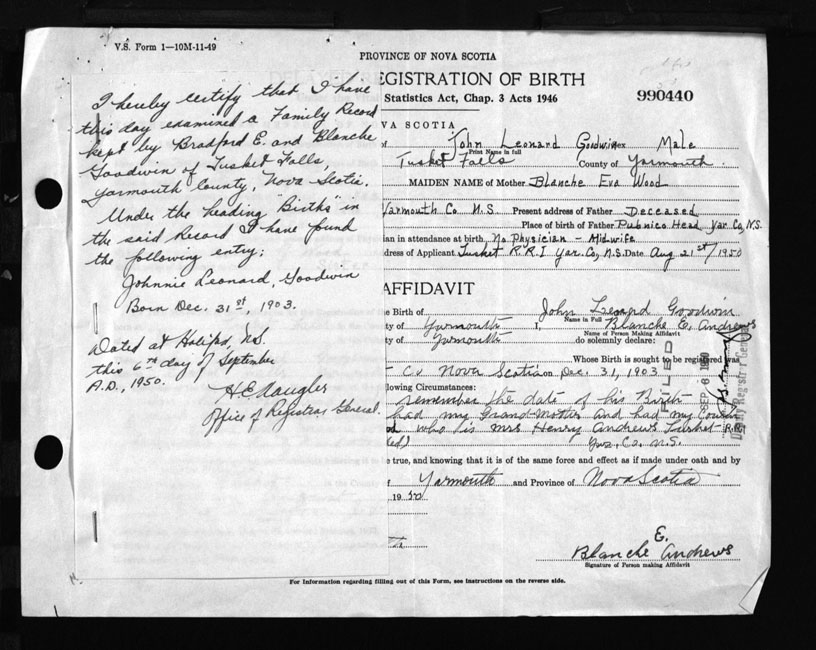 V.S. Form 1—10M-11-49
I hereby certify that I have
this day examined a Family Record
kept by Bradford E. and Blanche
Goodwin of Tusket Falls,
Yarmouth County, Nova Scotia.
Under the heading "Births" in
the said Record I have found
the following entry:
Johnnie Leonard, Goodwin
Born Dec. 31st, 1903.
Dated at Halifax, N.S.
this 6th day of September
A.D., 1950.
H E Naugler
Office of Registrar General.
PROVINCE OF NOVA SCOTIA
EGISTRATION OF BIRTH
Statistics Act, Chap. 3 Acts 1946
990440
VA SCOTIA
of John Leonard Goodwin ex Male
Print Name in full
Tusket Falls County of Yarmouth
MAIDEN NAME of Mother Blanche Eva Wood
Yarmouth Co N.S. Present address of Father Deceased
Place of birth of Father Pubnico Head Yar. Co, N.S.
ian in attendance at birth, No Physician - Midwife
dress of Applicant Tusket R.R.1 Yar. Co, N.S. Date Aug 21st/1950
AFFIDAVIT
e Birth of John Leonard Goodwin
Name in Full
ty of Yarmouth I, Blanche E. Andrews
Name of Person Making Affidavit
y of Yarmouth do solemnly declare:
Whose Birth is sought to be registered was
Co Nova Scotia on Dec. 31, 1903
lowing Circumstances:
remember the date of his Birth
had my Grand Mother and had my Cousin
who is Mrs Henry Andrews Tusket R.R.
Yar. Co. N.S.
e true, and knowing that it is of the same force and effect as if made under oath and by
f Yarmouth and Province of Nova Scotia
1950
FILED
SEP 6 1950
Deputy Registrar General
Blanche E. Andrews
Signature of Person making Affidavit
For Information regarding filling out of this Form, see Instructions on the reverse side.